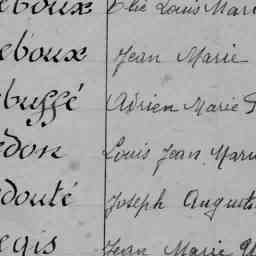 eboux Elie Louis Mari
eboux Jean Marie
buffé Adrien Marie
édon Louis Jean Marie
douté Joseph August
egis Jean Marie